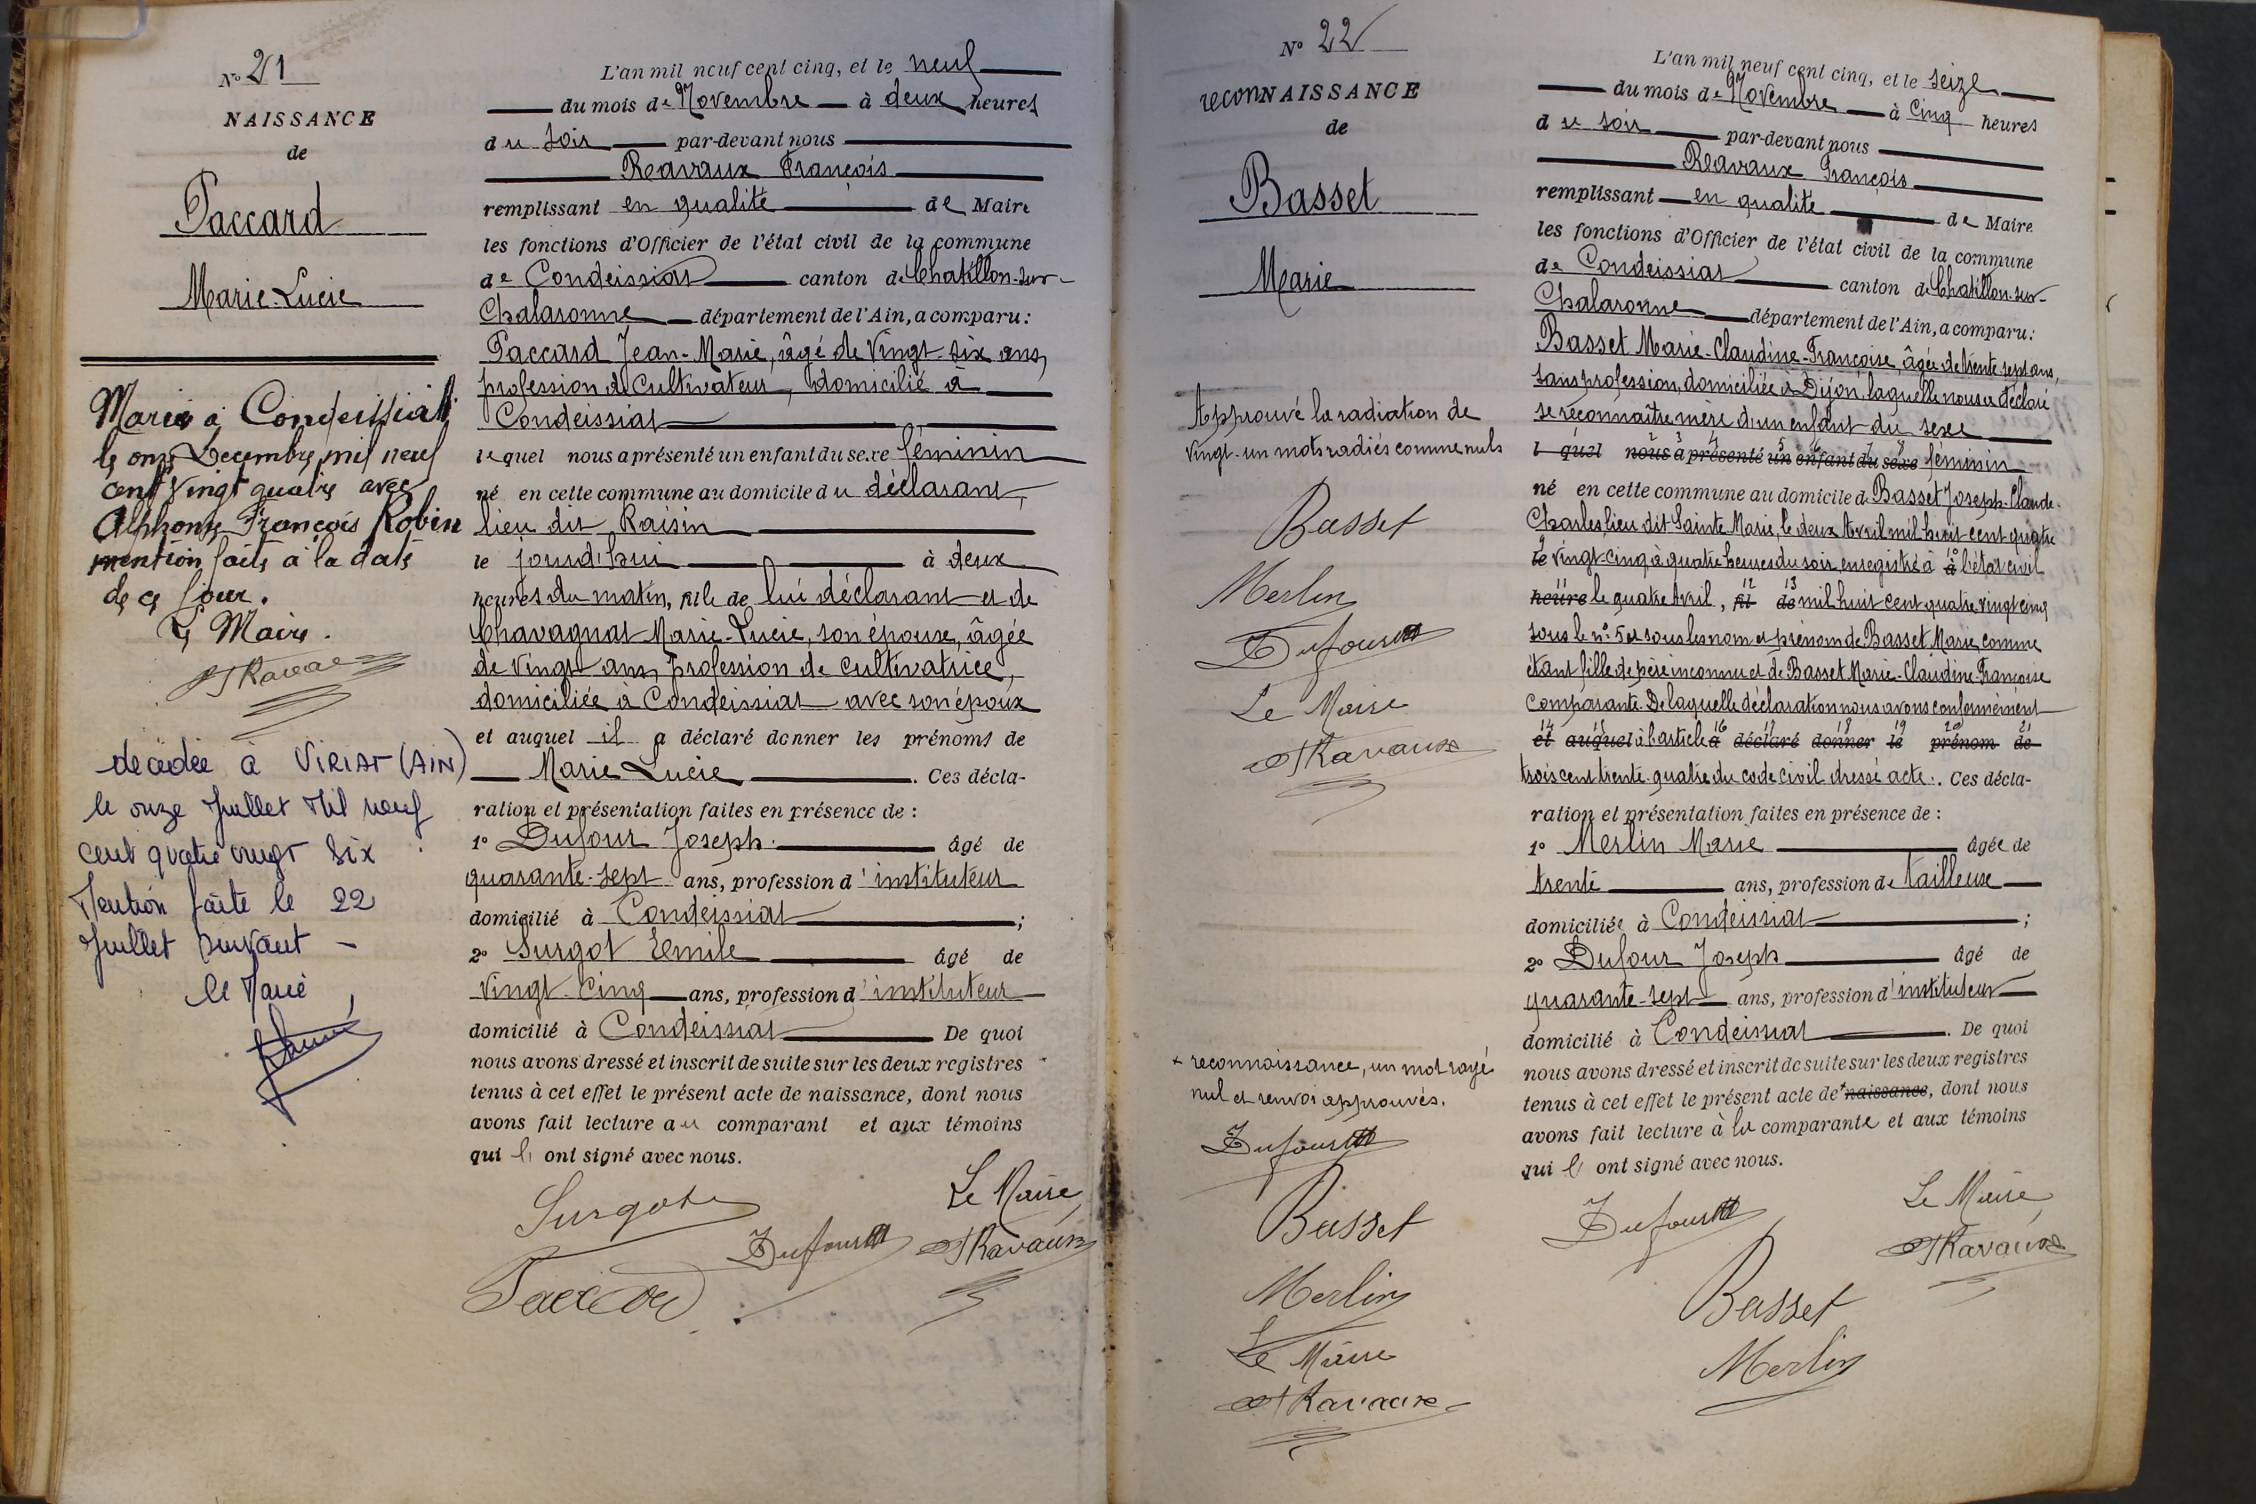 N° 21
NAISSANCE
de
Paccard
Marie-Lucie
Marié à Condeissiat
le onze Decembre mil neuf
cent vingt quatre avec
Alphonse François Robin
mention faite à la date
de ce jour.
Le Maire.
Ravaux
décédée à VIRIAT (AIN)
le onze Juillet Mil neuf
cent quatre vingt six
Mention faite le 22
Juillet suivant -
le Maire,
L'an mil neuf cent cinq, et le neuf
du mois de Novembre à deux heures
du soir par-devant nous
Ravaux François
remplissant en qualité de Maire
les fonctions d'Officier de l'état civil de la commune
de Condeissiat canton de Chatillon-sur-
Chalaronne département de l'Ain, a comparu:
Paccard Jean-Marie, âgé de vingt-six ans,
profession de cultivateur, domicilié à
Condeissiat
lequel nous a présenté un enfant du sexe féminin
né en cette commune au domicile du déclarant,
lieu dit Raisin
le jourd'hui à deux
heures du matin, fille de lui déclarant et de
Chavagnat Marie-Lucie, son épouse, âgée
de vingt ans, profession de cultivatrice,
domiciliée à Condeissiat avec son époux
et auquel il a déclaré donner les prénoms de
Marie Lucie. Ces décla-
ration et présentation faites en présence de :
1° Dufour Joseph. âgé de
quarante-sept ans, profession d'instituteur
domicilié à Condeissiat ;
2° Surgot Emile âgé de
vingt-cinq ans, profession d'instituteur
domicilié à Condeissiat De quoi
nous avons dressé et inscrit de suite sur les deux registres
tenus à cet effet le présent acte de naissance, dont nous
avons fait lecture au comparant et aux témoins
qui ont signé avec nous.
Surgot
Le Maire,
Dufour
Ravaux
Paccard
N° 22
reconNAISSANCE
de
Basset
Marie
Approuvé la radiation de
vingt-un mots radiés comme nuls
Basset
Merlin
Dufour
Le Maire
Ravaux
+ reconnaissance, un mot rayé
nul et renvoi approuvés.
Dufour
Basset
Merlin
Le Maire
Ravaux
L'an mil neuf cent cinq, et le seize
du mois de Novembre à cinq heures
du soir par-devant nous
Ravaux François
remplissant en qualité de Maire
les fonctions d'Officier de l'état civil de la commune
de Condeissiat canton de Chatillon-sur-
Chalaronne département de l'Ain, a comparu:
Basset Marie-Claudine-Françoise, âgée de trente sept ans,
sans profession, domiciliée à Dijon, laquelle nous a déclaré
se reconnaître mère d'un enfant du sexe
l quel nous a présenté un enfant du sexe féminin
né en cette commune au domicile de Basset Joseph-Claude-
Charles lieu dit Sainte Marie, le deux Avril mil huit cent quatre
le vingt-cinq à quatre heures du soir, enregistré à à l'état civil
heures le quatre Avril, fil de mil huit cent quatre vingt cinq
sous le n° 5 et sous les nom et prénom de Basset Marie comme
étant fille de père inconnu et de Basset Marie-Claudine-Françoise
comparante. De laquelle déclaration nous avons conformément
et auquel à l'article a déclaré donner le prénom de
trois cent trente-quatre du code civil dressé acte. Ces décla-
ration et présentation faites en présence de :
1° Merlin Marie âgée de
trente ans, profession de tailleuse
domiciliée à Condeissiat ;
2° Dufour Joseph âgé de
quarante-sept ans, profession d'instituteur
domicilié à Condeissiat. De quoi
nous avons dressé et inscrit de suite sur les deux registres
tenus à cet effet le présent acte de + naissance, dont nous
avons fait lecture à la comparante et aux témoins
qui ont signé avec nous.
Le Maire,
Dufour
Ravaux
Basset
Merlin